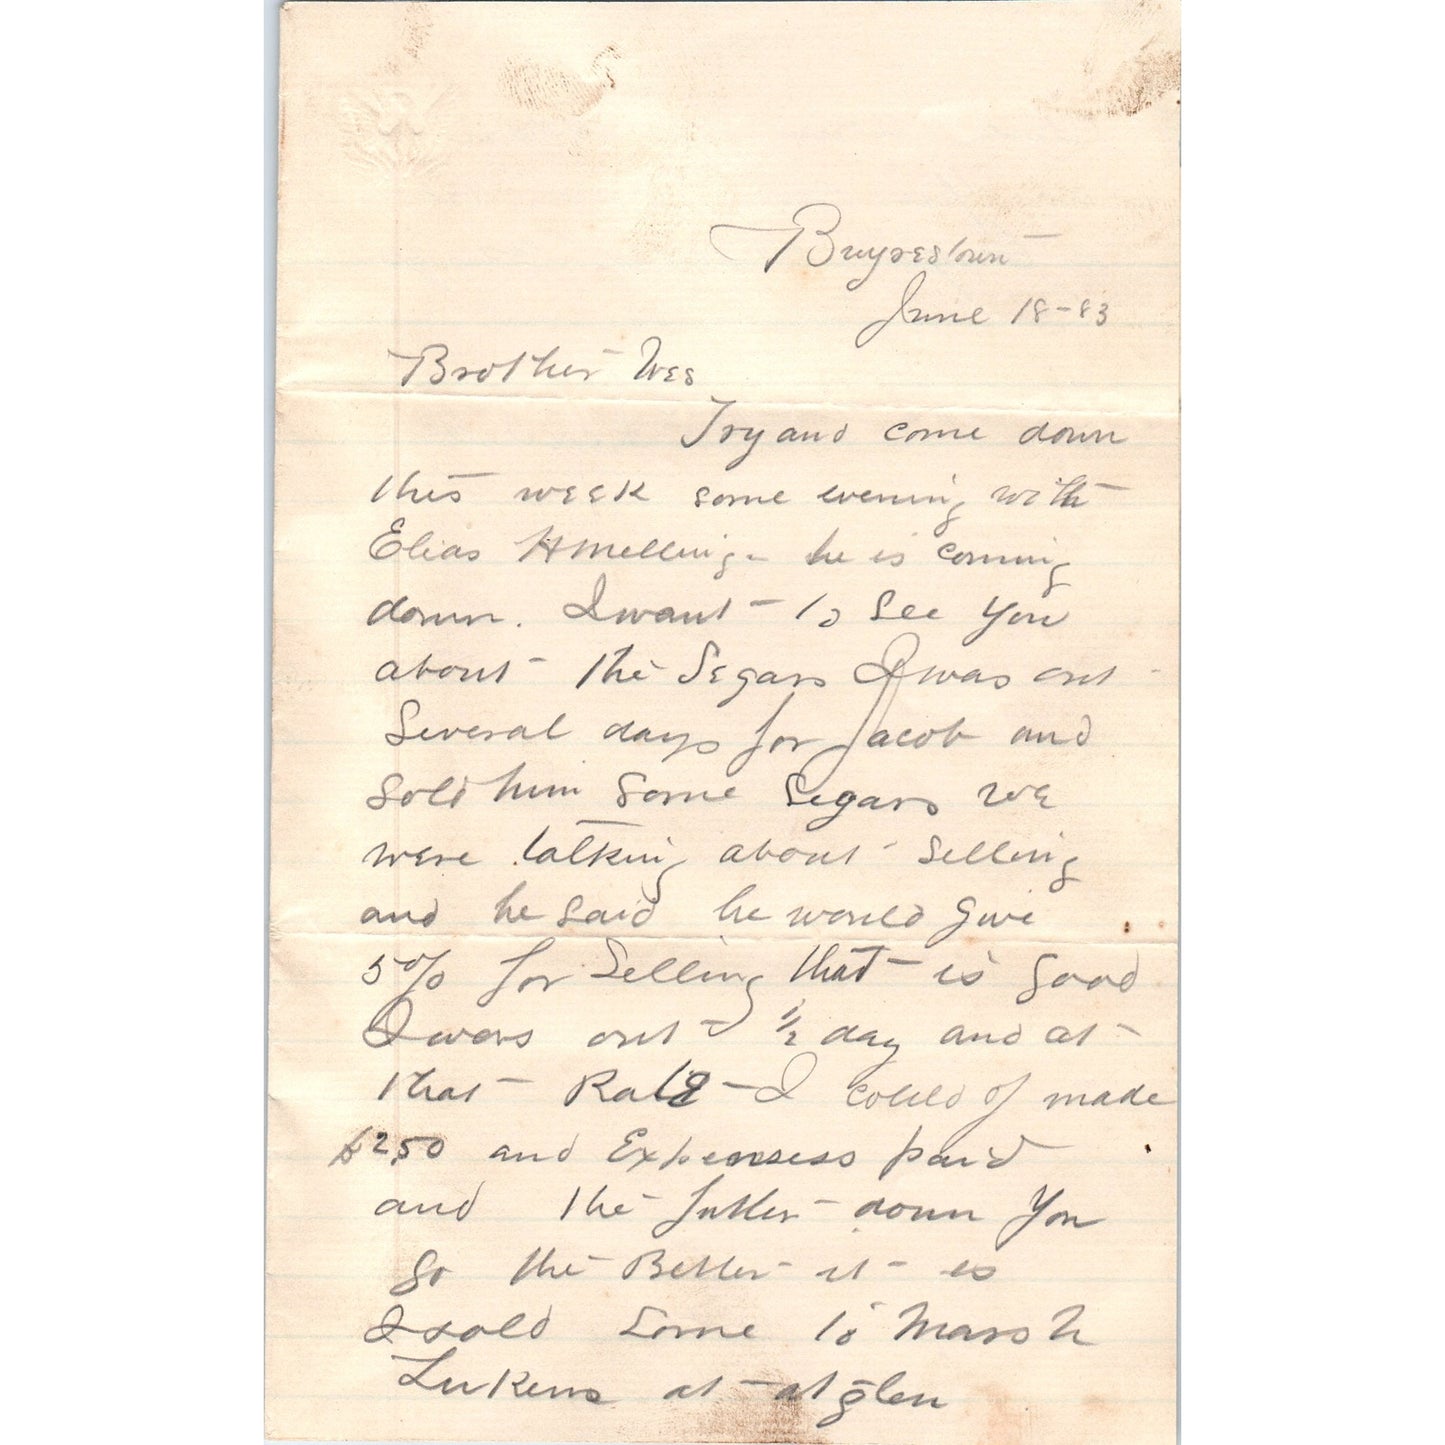 Buyrestown
June 18-83
Brother Wes
Try and come down
this week some evening with
Elias he is coming
down. I want to see you
about the Segars I was out
Several days for Jacob and
sold him some Segars we
were talking about selling
and he said he would give
5% for Selling that is good
I was out ½ day and at
that Rate I could of made
$2.50 and Expensess paid
and the futher down you
go the Better it is
I sold some to Marsh
Lukens at atglen